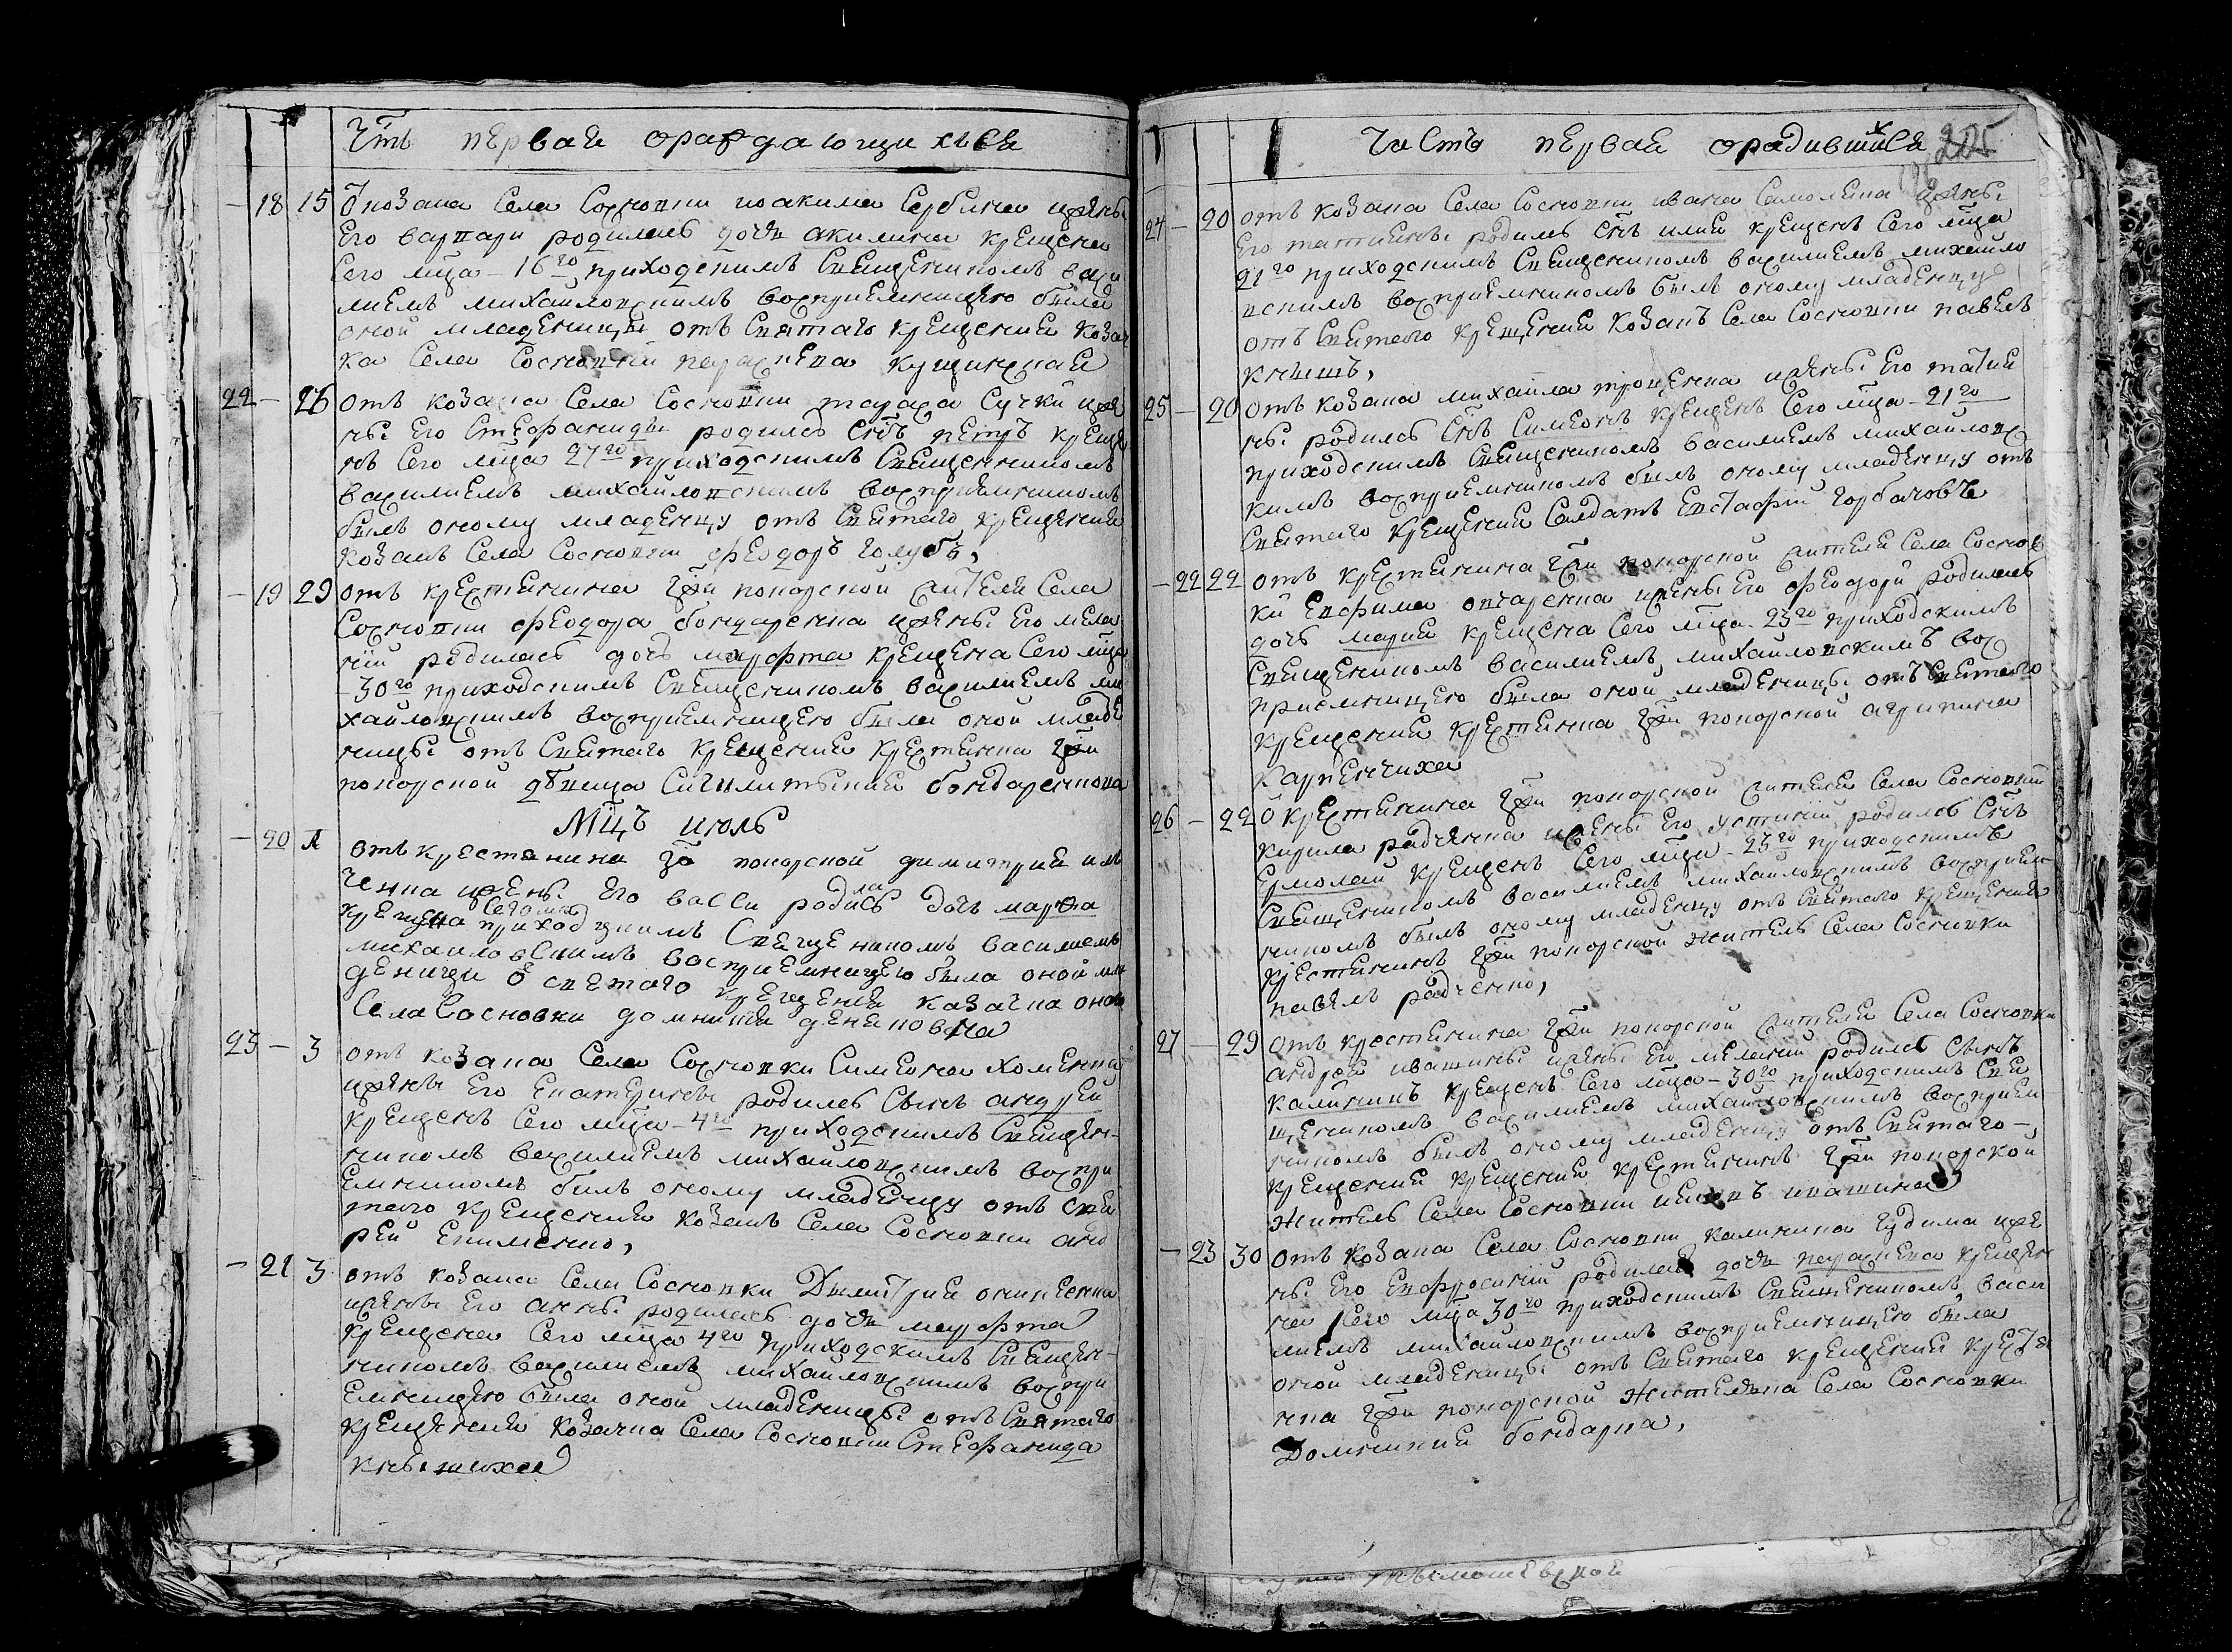 Чть первая ораждающихъся
18 15 Ѿ козака Села Сосновки иоакима Сербина и жены
Его варвари родилась дочь акилина крещена
Сего мца 16го приходскимъ Священникомъ васи
лиемъ михайловскимъ восприемницею была
оной младеницы отъ Святаго крещения козач
ка Села Сосновки параскева
22 26 отъ козака Села Сосновки тараса Сучки и же
ны Его Стефаниды родился Снъ петръ креще
нъ Сего мца 27го приходскимъ Священникомъ
василиемъ михайловскимъ восприемникомъ
былъ оному младенцу отъ Святаго крещения
козакъ Села Сосновки феодоръ голубъ,
19 29 отъ крестянина гжи понорской жителя Села
Сосновки феодора бондаренка и жены Его мела
нии родилась дочь марфа крещена Сего мца
30го приходскимъ Священникомъ василиемъ ми
хайловскимъ восприемницею была оной младе
ницы отъ Святаго крещения крестянка гжи
понорской девица бондаренкова
Мцъ июль
20 отъ крестянина гжи понорской димитрия
ченка и жены Его васси родилась дочь марфа
крещена Сего мца приходскимъ Священикомъ василиемъ
михайловскимъ восприемницею была оной мла
деници ѿ святаго крещения казачка оно
Села Сосновки домникия
23 3 отъ козака Села Сосновки Симеона хоменка
и жены Его Екатерины родился Сынъ андрей
крещенъ Сего мца 4го приходскимъ Священ-
никомъ василиемъ михайловскимъ воспри
емникомъ билъ оному младенцу отъ Свя
таго крещения козакъ Села Сосновки анд
рей
21 3 отъ козака Села Сосновки Дымитрия
и жены Его анны родилась дочь марфа
крещена Сего мца 4го приходскимъ Священ-
никомъ василиемъ михайловскимъ воспри
емницею била оной младеницы отъ Святаго
крещения козачка Села Сосновки Стефанида
кнышиха
Часть первая орадившихся 205
24 20 отъ козака Села Сосновки ивана Самохина и жены
Его татияны родилъ Снъ илия крещенъ Сего мца
21го приходскимъ Священникомъ василиемъ михайло
вскимъ восприемникомъ былъ оному младенцу
отъ Святаго крещения козакъ Села Сосновки павелъ
кнышъ,
25 20 отъ козака михаила троценка и жены Его татия
ны родился Снъ Симеонъ крещенъ Сего мца 21го
приходскимъ Священникомъ василиемъ михайловс
кимъ восприемникомъ былъ оному младенцу отъ
Святаго крещения Салдатъ Евстафий горбачовъ
22 22 отъ крестянина гжи понорской жителя Села Соснов
ки Евфима овчаренка и жены Его феодори родилась
дочъ мария крещена Сего мца 23го приходскимъ
Священникомъ василиемъ михайловскимъ вос
приемницею была оной младеницы отъ Святаго
крещения крестянка гжи понорской агрипина
карпенчиха
26 22 Ѿ крестянина гжи понорской жителя Села Сосновки
кирила радченка и жены Его устинии родился Снъ
Ермолай крещенъ Сего мца 23го приходскимъ
Священникомъ василиемъ михайловскимъ восприем
никомъ былъ оному младенцу отъ Святаго крещения
крестянинъ гжи понорской житель Села Сосновки
павелъ радченко,
27 29 отъ крестянина гжи понорской жителя Села Сосновки
андрея ивашины и жены Его мелании родился Сынъ
калиникъ крещенъ Сего мца 30го приходскимъ Свя
щенникомъ василиемъ михайловскимъ восприем
никомъ былъ оному младенцу отъ Святаго-
крещения крещения крестянинъ гжи понорской
житель Села Сосновки ивашина
23 30 отъ козака Села Сосновки калиника гудима и же
ны Его Евфросинии родилась дочь параскева креще
на Сего мца 30го приходскимъ Священникомъ васи
лиемъ михайловскимъ восприемницею была
оной младеницы отъ Святаго крещения крестя
нка гжи понорской жителька Села Сосновки
Домникия бондарка,